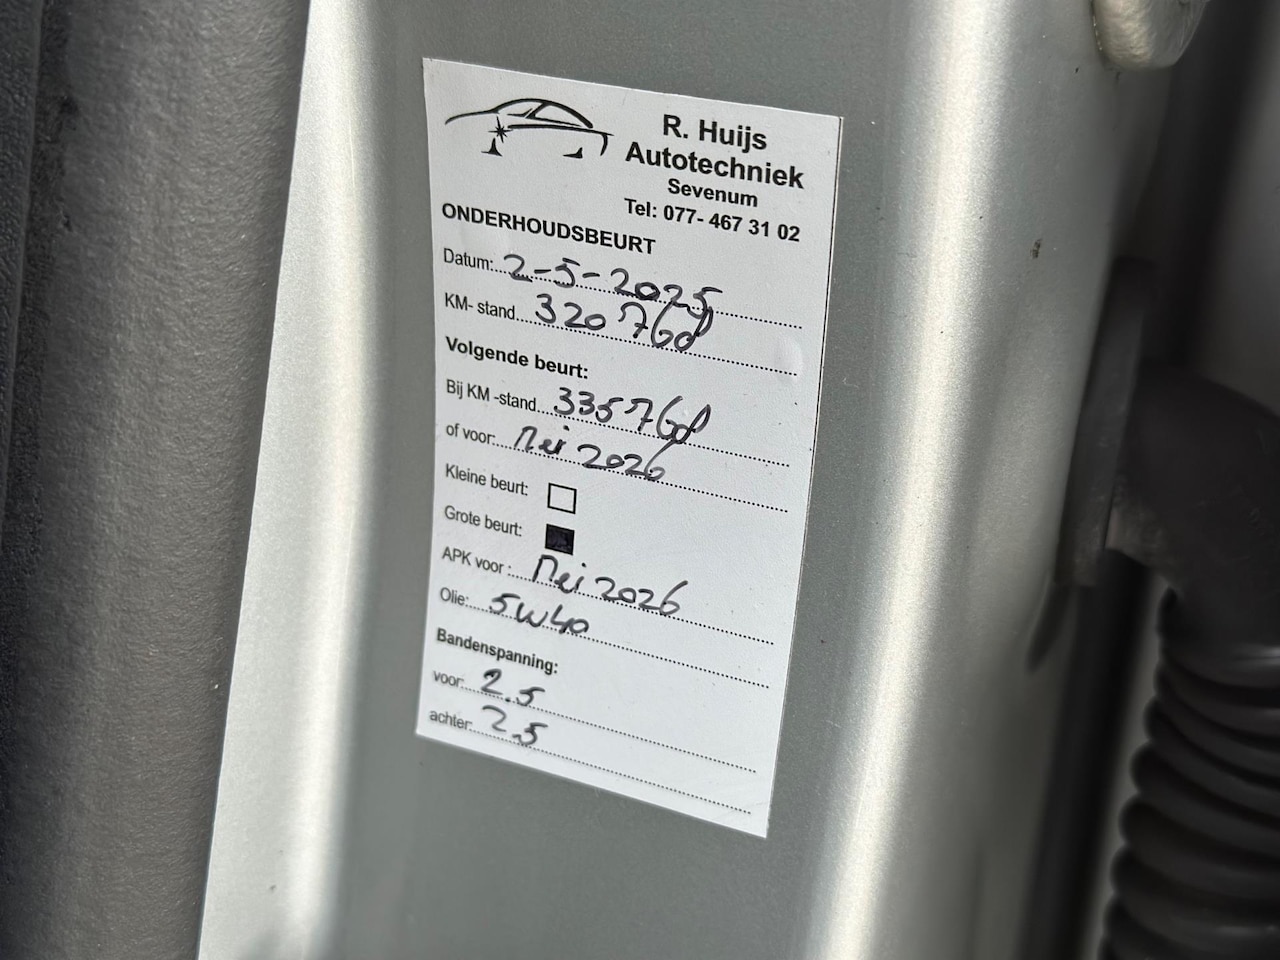 R. Huijs
Autotechniek
Sevenum
Tel: 077- 467 31 02
ONDERHOUDSBEURT
Datum: 2-5-2025
KM- stand 320768
Volgende beurt:
Bij KM -stand 335768
of voor: Mei 2026
Kleine beurt:
Grote beurt:
APK voor : Mei 2026
Olie: 5W40
Bandenspanning:
voor: 2.5
achter: 2.5